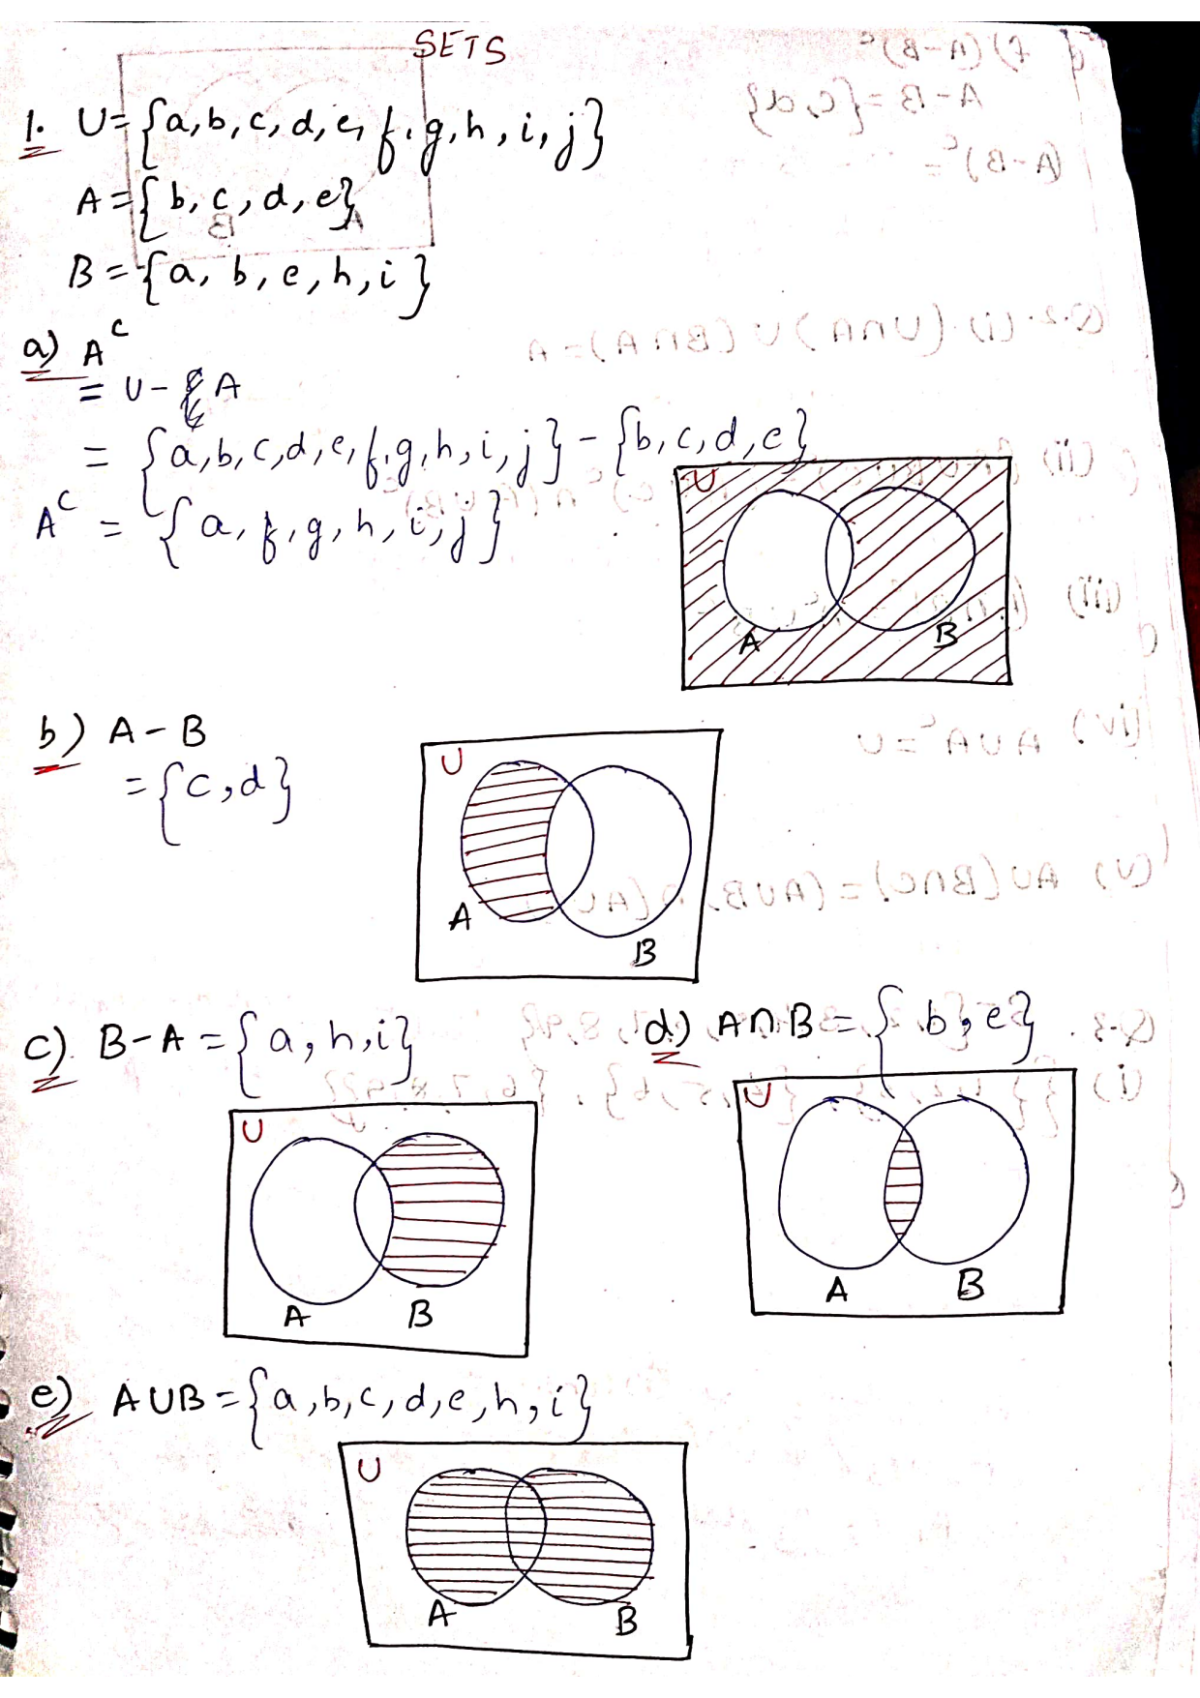 SETS
1. U = {a, b, c, d, e, f, g, h, i, j}
A = {b, c, d, e}
B = {a, b, e, h, i}
a) A^c
= U - A
= {a, b, c, d, e, f, g, h, i, j} - {b, c, d, e}
A^c = {a, f, g, h, i, j}
U
A B
b) A - B
= {c, d}
U
A
B
c) B - A = {a, h, i}
d) A ∩ B = {b, e}
U
A B
U
A B
e) A ∪ B = {a, b, c, d, e, h, i}
U
A B